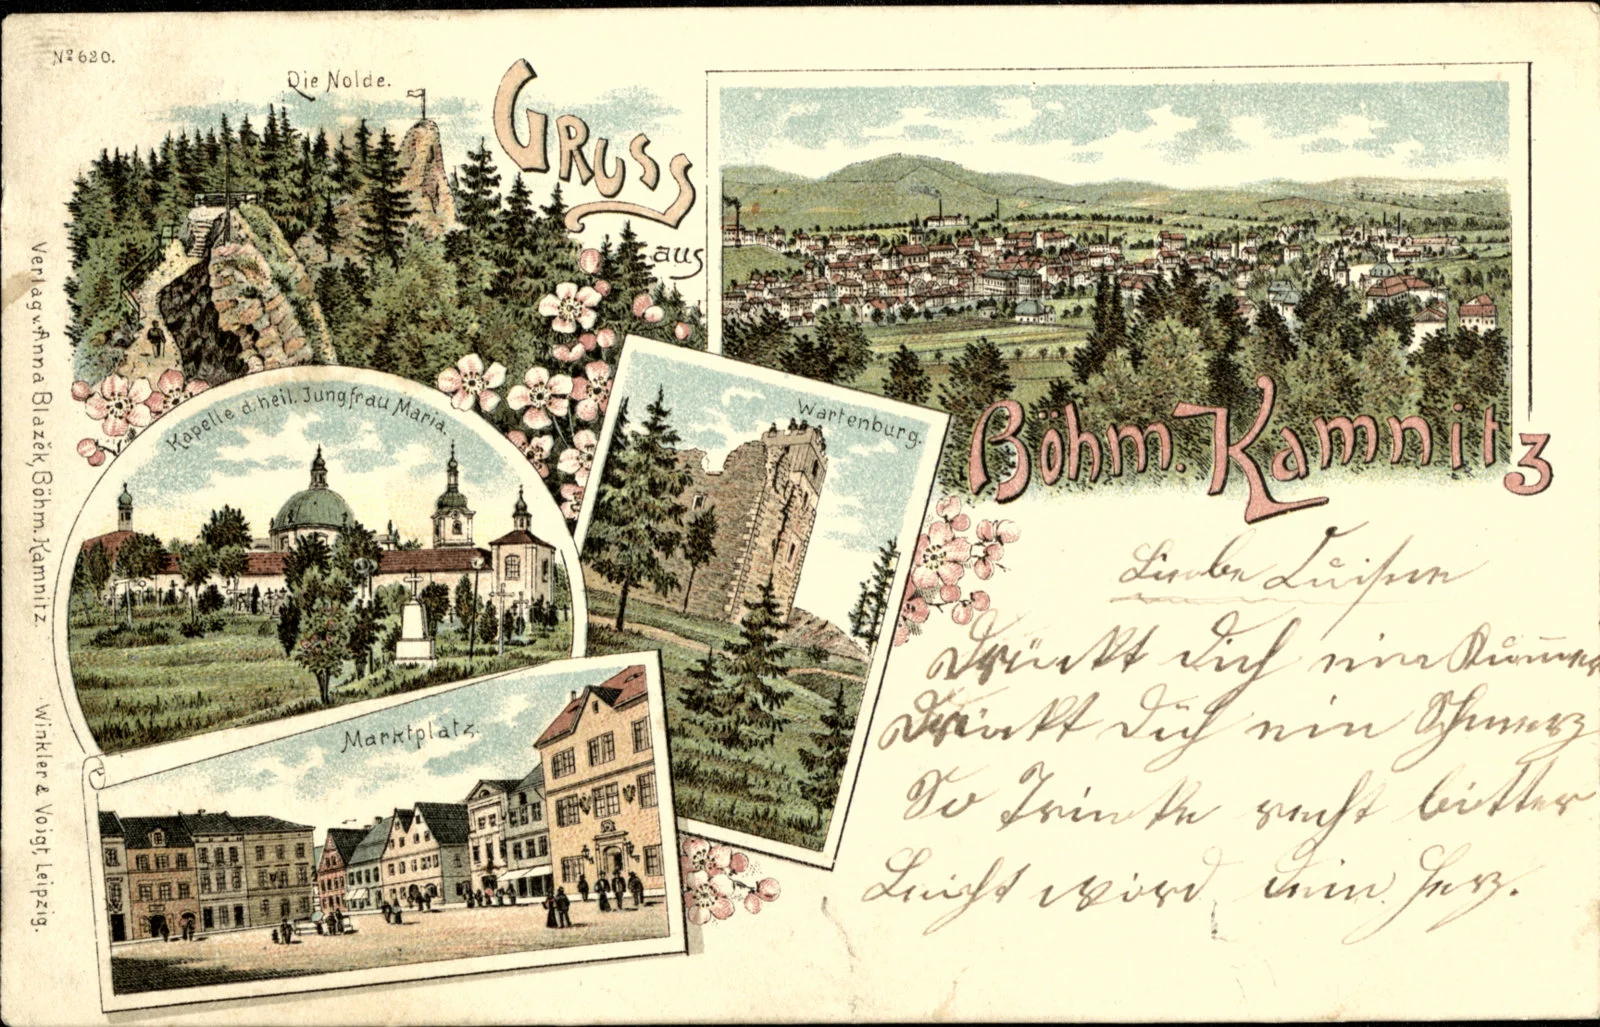 Nº 620.
Die Nolde.
GRUSS
aus
Böhm. Kamnitz
Kapelle d. heil. Jungfrau Maria.
Wartenburg.
Marktplatz.
Verlag v. Anna Blazěk, Böhm. Kamnitz.
Winkler & Voigt, Leipzig.
Liebe Luise
Drückt dich ein Kummer
Drückt dich ein Schmerz
So Trinke recht bitter
Leicht wird dein Herz.